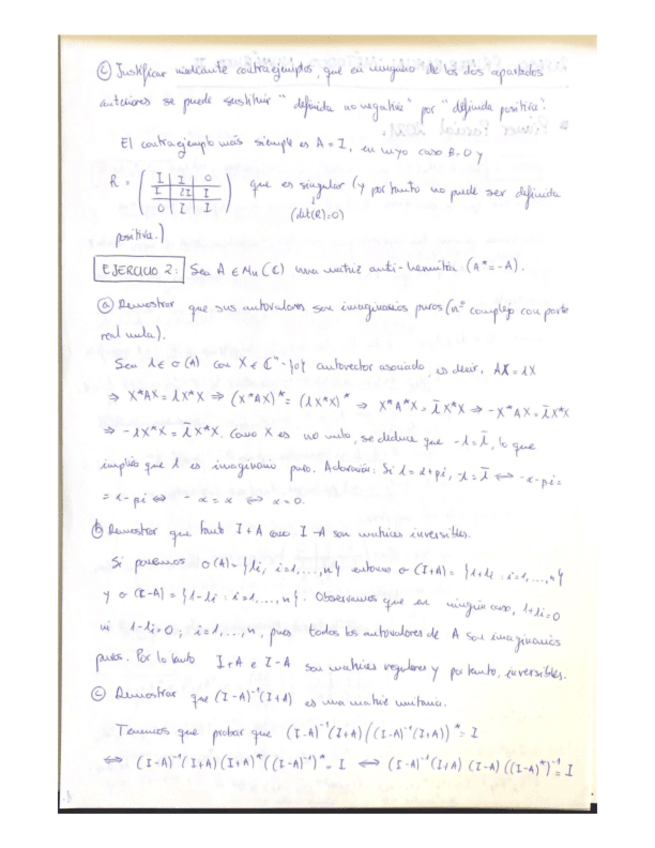 ⓒ Justificar mediante contraejemplos, que en ninguno de los dos apartados
anteriores se puede sustituir "definida no negativa" por "definida positiva".
El contraejemplo más simple es A = I, en cuyo caso B=0 y
R = ( I | I | 0
I | 2I | I
0 | I | I ) que es singular (y por tanto no puede ser definida
(det(R)=0)
positiva.)
EJERCICIO 2: Sea A ∈ Mn(ℂ) una matriz anti-hermítica (A* = -A).
ⓐ Demostrar que sus autovalores son imaginarios puros (nº complejo con parte
real nula).
Sea λ ∈ σ(A) con X ∈ ℂⁿ-{0} autovector asociado, es decir, AX = λX
⇒ X*AX = λX*X ⇒ (X*AX)* = (λX*X)* ⇒ X*A*X = λ̄X*X ⇒ -X*AX = λ̄X*X
⇒ -λX*X = λ̄X*X. Como X es no nulo, se deduce que -λ = λ̄, lo que
implica que λ es imaginario puro. Aclaración: Si λ = α+βi, -λ = λ̄ ⇔ -α-βi =
= α-βi ⇔ -α = α ⇔ α = 0.
ⓑ Demostrar que tanto I+A como I-A son matrices inversibles.
Si ponemos σ(A) = {λi, i=1,...,n} entonces σ(I+A) = {1+λi : i=1,...,n}
y σ(I-A) = {1-λi : i=1,...,n}. Observamos que en ningún caso, 1+λi=0
ni 1-λi=0; i=1,...,n, pues todos los autovalores de A son imaginarios
puros. Por lo tanto I+A e I-A son matrices regulares y por tanto, inversibles.
ⓒ Demostrar que (I-A)⁻¹(I+A) es una matriz unitaria.
Tenemos que probar que (I-A)⁻¹(I+A)((I-A)⁻¹(I+A))* = I
⇔ (I-A)⁻¹(I+A)(I+A)*((I-A)⁻¹)* = I ⇔ (I-A)⁻¹(I+A)(I-A)((I-A)*)⁻¹ = I